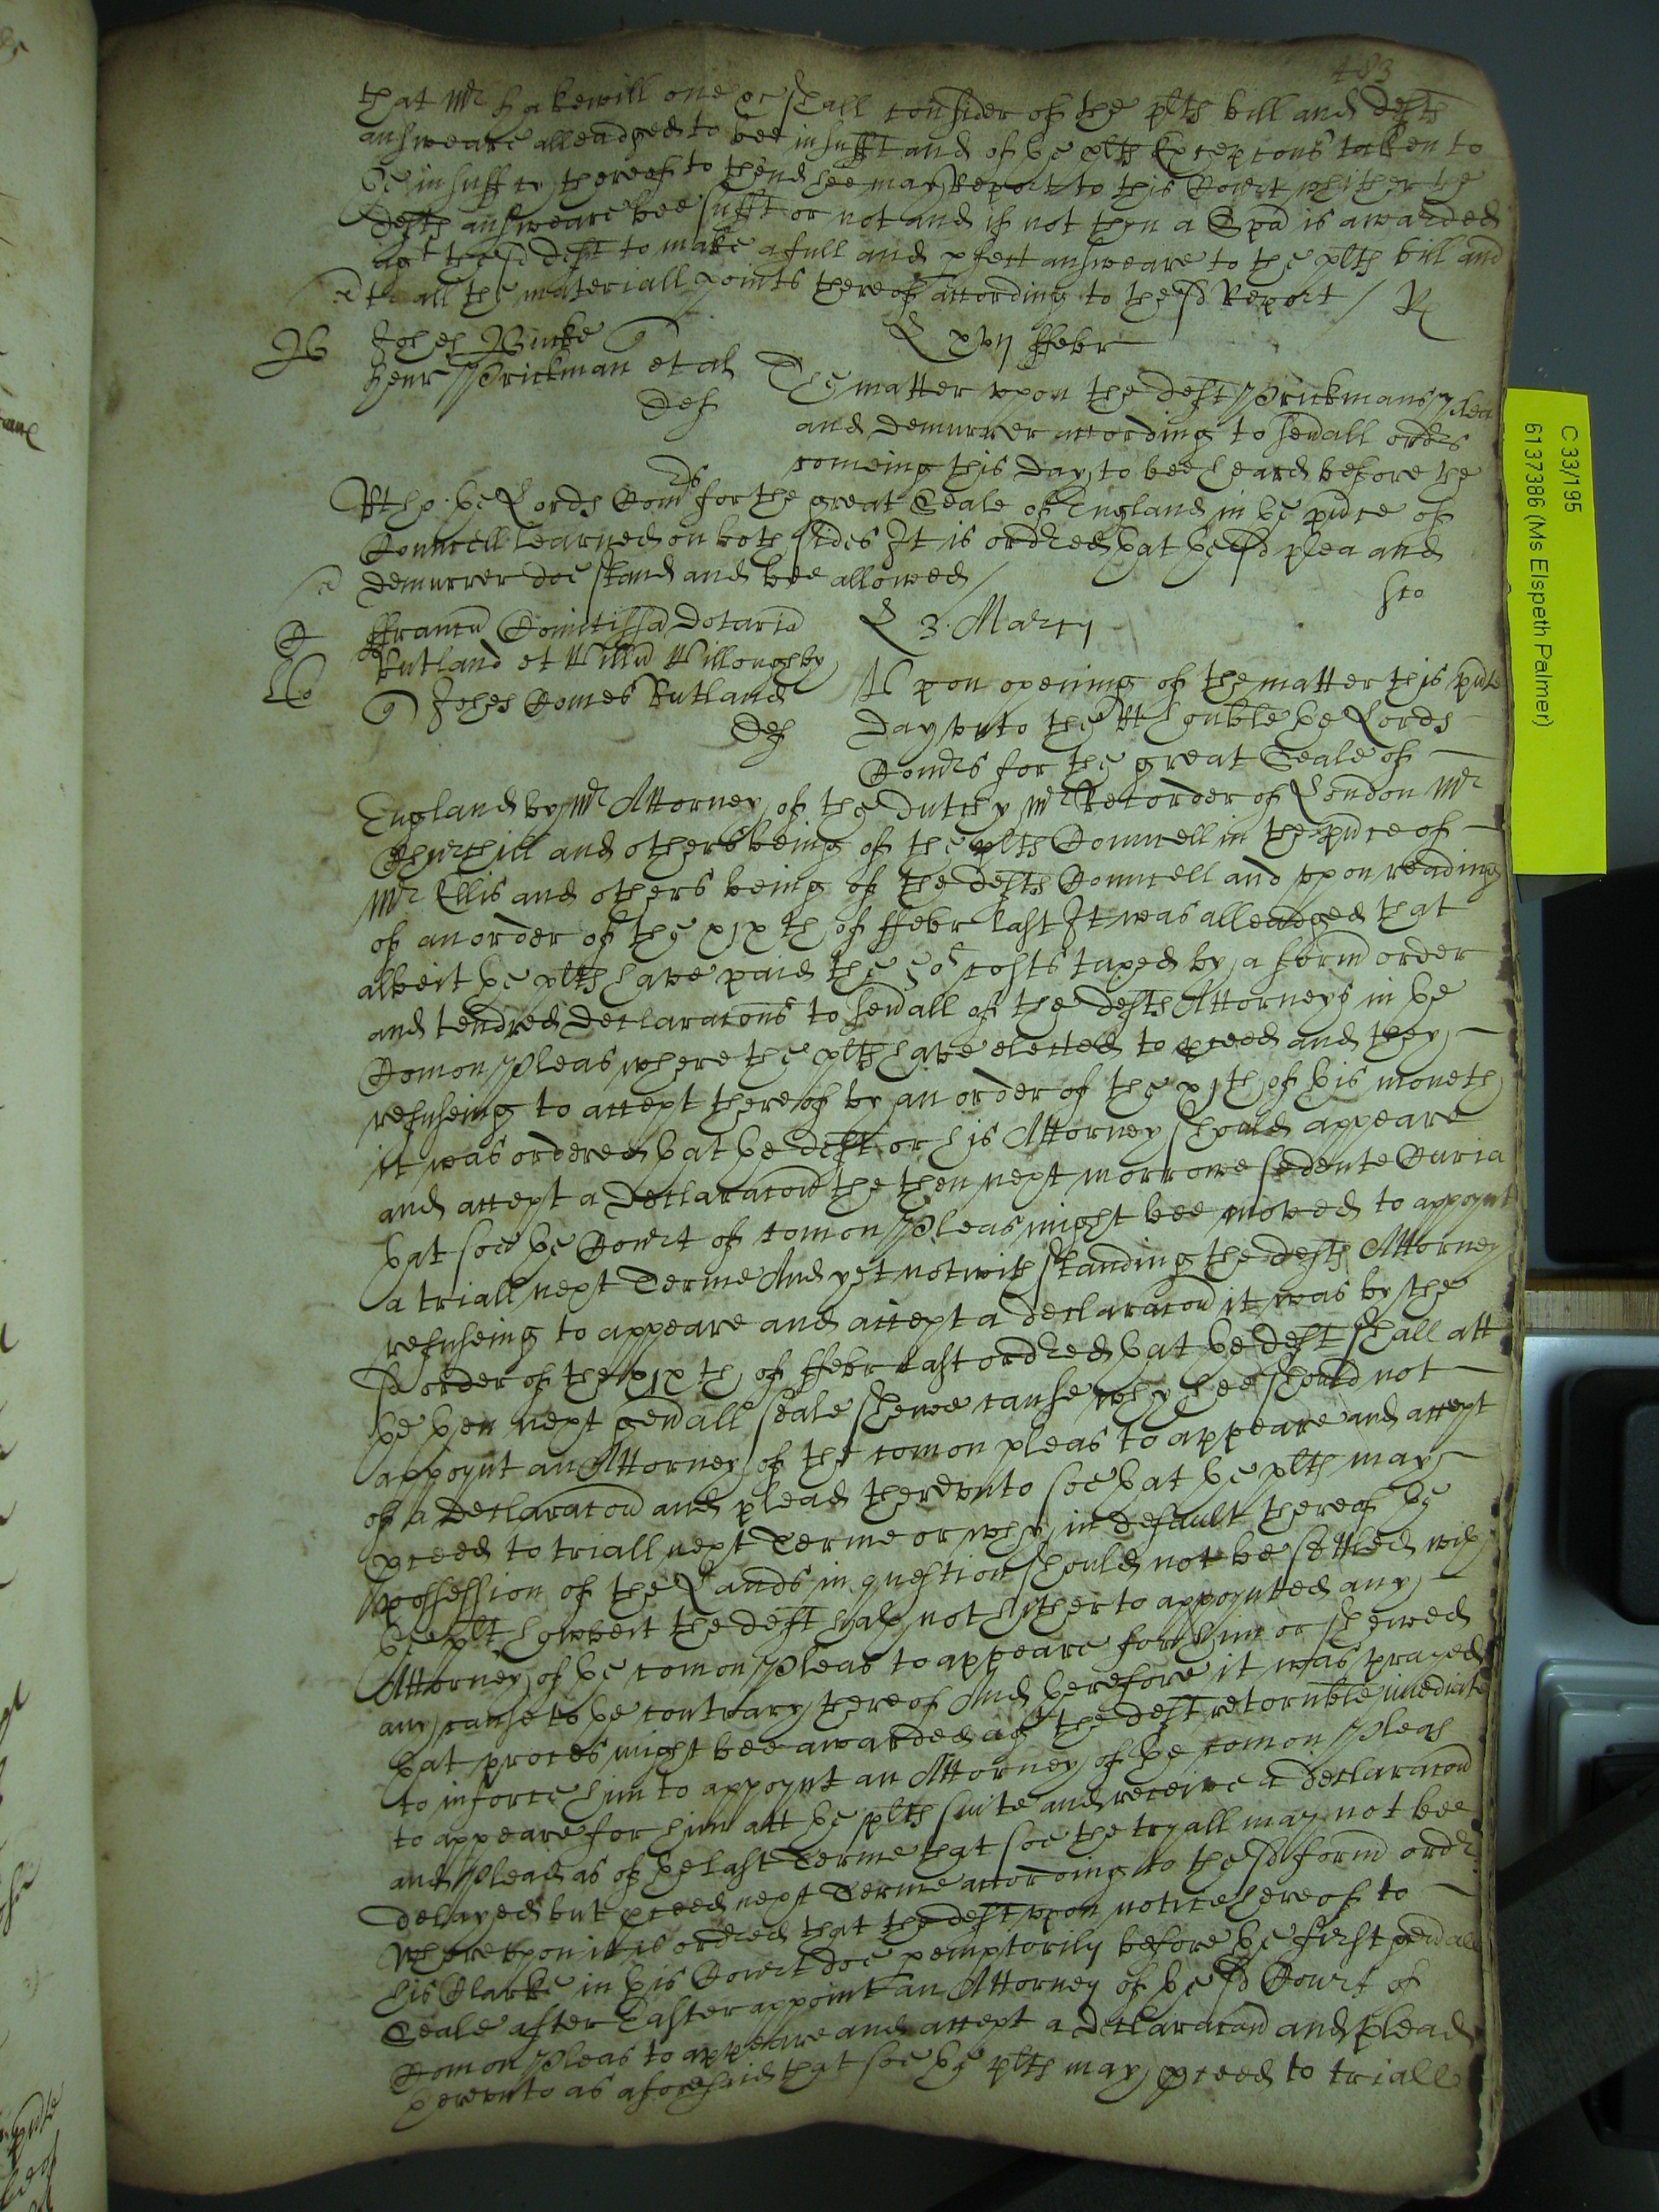 483
that Mr Hakewill one &c shall consider of the plts bill and defts
answeare alleadged to bee insufft and of ye plts Excepcons taken to
ye insufficy thereof to thend hee may Report to this Court whither the
defts answeare bee sufft or not and if not then a Spa is awarded
agt the sd deft to make a full and pfect answeare to the plts bill and
to all the materiall points thereof according to the sd Report / R
Johes Bincke
L xvij ffebr
Henr Prickman et al
def
The matter upon the deft Prickmans plea
and demurrer according to seuall ords
comeing this day to bee heard before the
Rt ho: ye Lords Comrs for the great Seale of England in ye pnce of
Councell learned on both sides It is ordred yat ye sd plea and
demurrer doe stand and bee allowed /
Francu Comitissa Dotaria
L 3. Marcij
Rutland et Willu Willoughby
q Johes Comes Rutland
def
Upon opening of the matter this pnte
day unto the Rt Honble ye Lords
Comrs for the great Seale of
England by Mr Attorney of the Dutchy Mr Recorder of London Mr
Churchill and others being of the plts Councell in the pnce of
Mr Ellis and others being of the defts Councell and upon reading
of an order of the xixth of ffebr last It was alleadged that
albeit ye plts have paid the costs taxed by a form order
and tendred declaracons to seuall of the defts Attorneys in ye
Comon Pleas where the plts have elected to pceed and they
refuseing to accept thereof by an order of the xjth of yis moneth
it was ordered yat ye deft or his Attorney should appeare
and accept a declaracon the then next morrowe sedente Curia
yat soe ye Court of comon Pleas might bee moved to appoynt
a triall next Terme And yet notwithstanding the defts Attorney
refuseing to appeare and accept a declaracon it was by the
sd order of the xixth of ffebr last ordred yat ye deft shall att
ye yen next genall seale shewe cause why hee should not
appoynt an Attorney of the comon pleas to appeare and accept
of a declaracon and plead thereunto soe yat ye plts may
pceed to triall next Terme or why in default thereof ye
possession of the Lands in question should not be settled with
ye plt howbeit the deft hath not hitherto appoynted any
Attorney of ye comon Pleas to appeare for him or shewed
any cause to ye contrary thereof And yerefore it was prayed
yat proces might bee awarded agt the deft retornble imediate
to inforce him to appoynt an Attorney of ye comon Pleas
to appeare for him att ye plts suite and receive a declaracon
and Plead as of ye last Terme that soe the tryall may not bee
delayed but pceed next Terme according to the sd form ordr
Whereupon it is ordred that the deft upon notice hereof to
his Clarke in yis Court doe pemptorily before ye first genall
Seale after Easter appoint an Attorney of ye sd Court of
Comon Pleas to appeare and accept a declaracon and plead
yereunto as aforesaid that soe ye plts may pceed to triall
C 33/195
6137386 (Ms Elspeth Palmer)